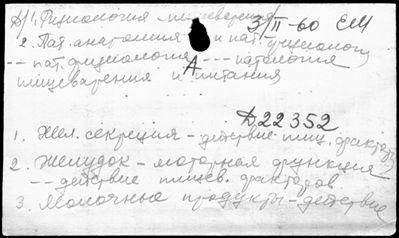 А) 1. Физиология пищеварения 3/II-60 ЕМ
2. Пат. анатомия и пат. физиология
-- пат. физиология --- патология
пищеварения и питания
А
Д22352
1. Жел. секреция - действие пищ. факторов
2. Желудок - моторная функция
--- действие пищев. факторов
3. Молочные продукты - действие